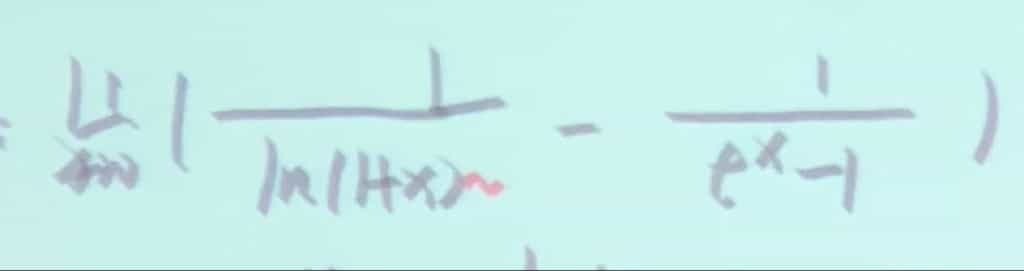 = lim ( 1/ln(1+x) - 1/(e^x-1) )